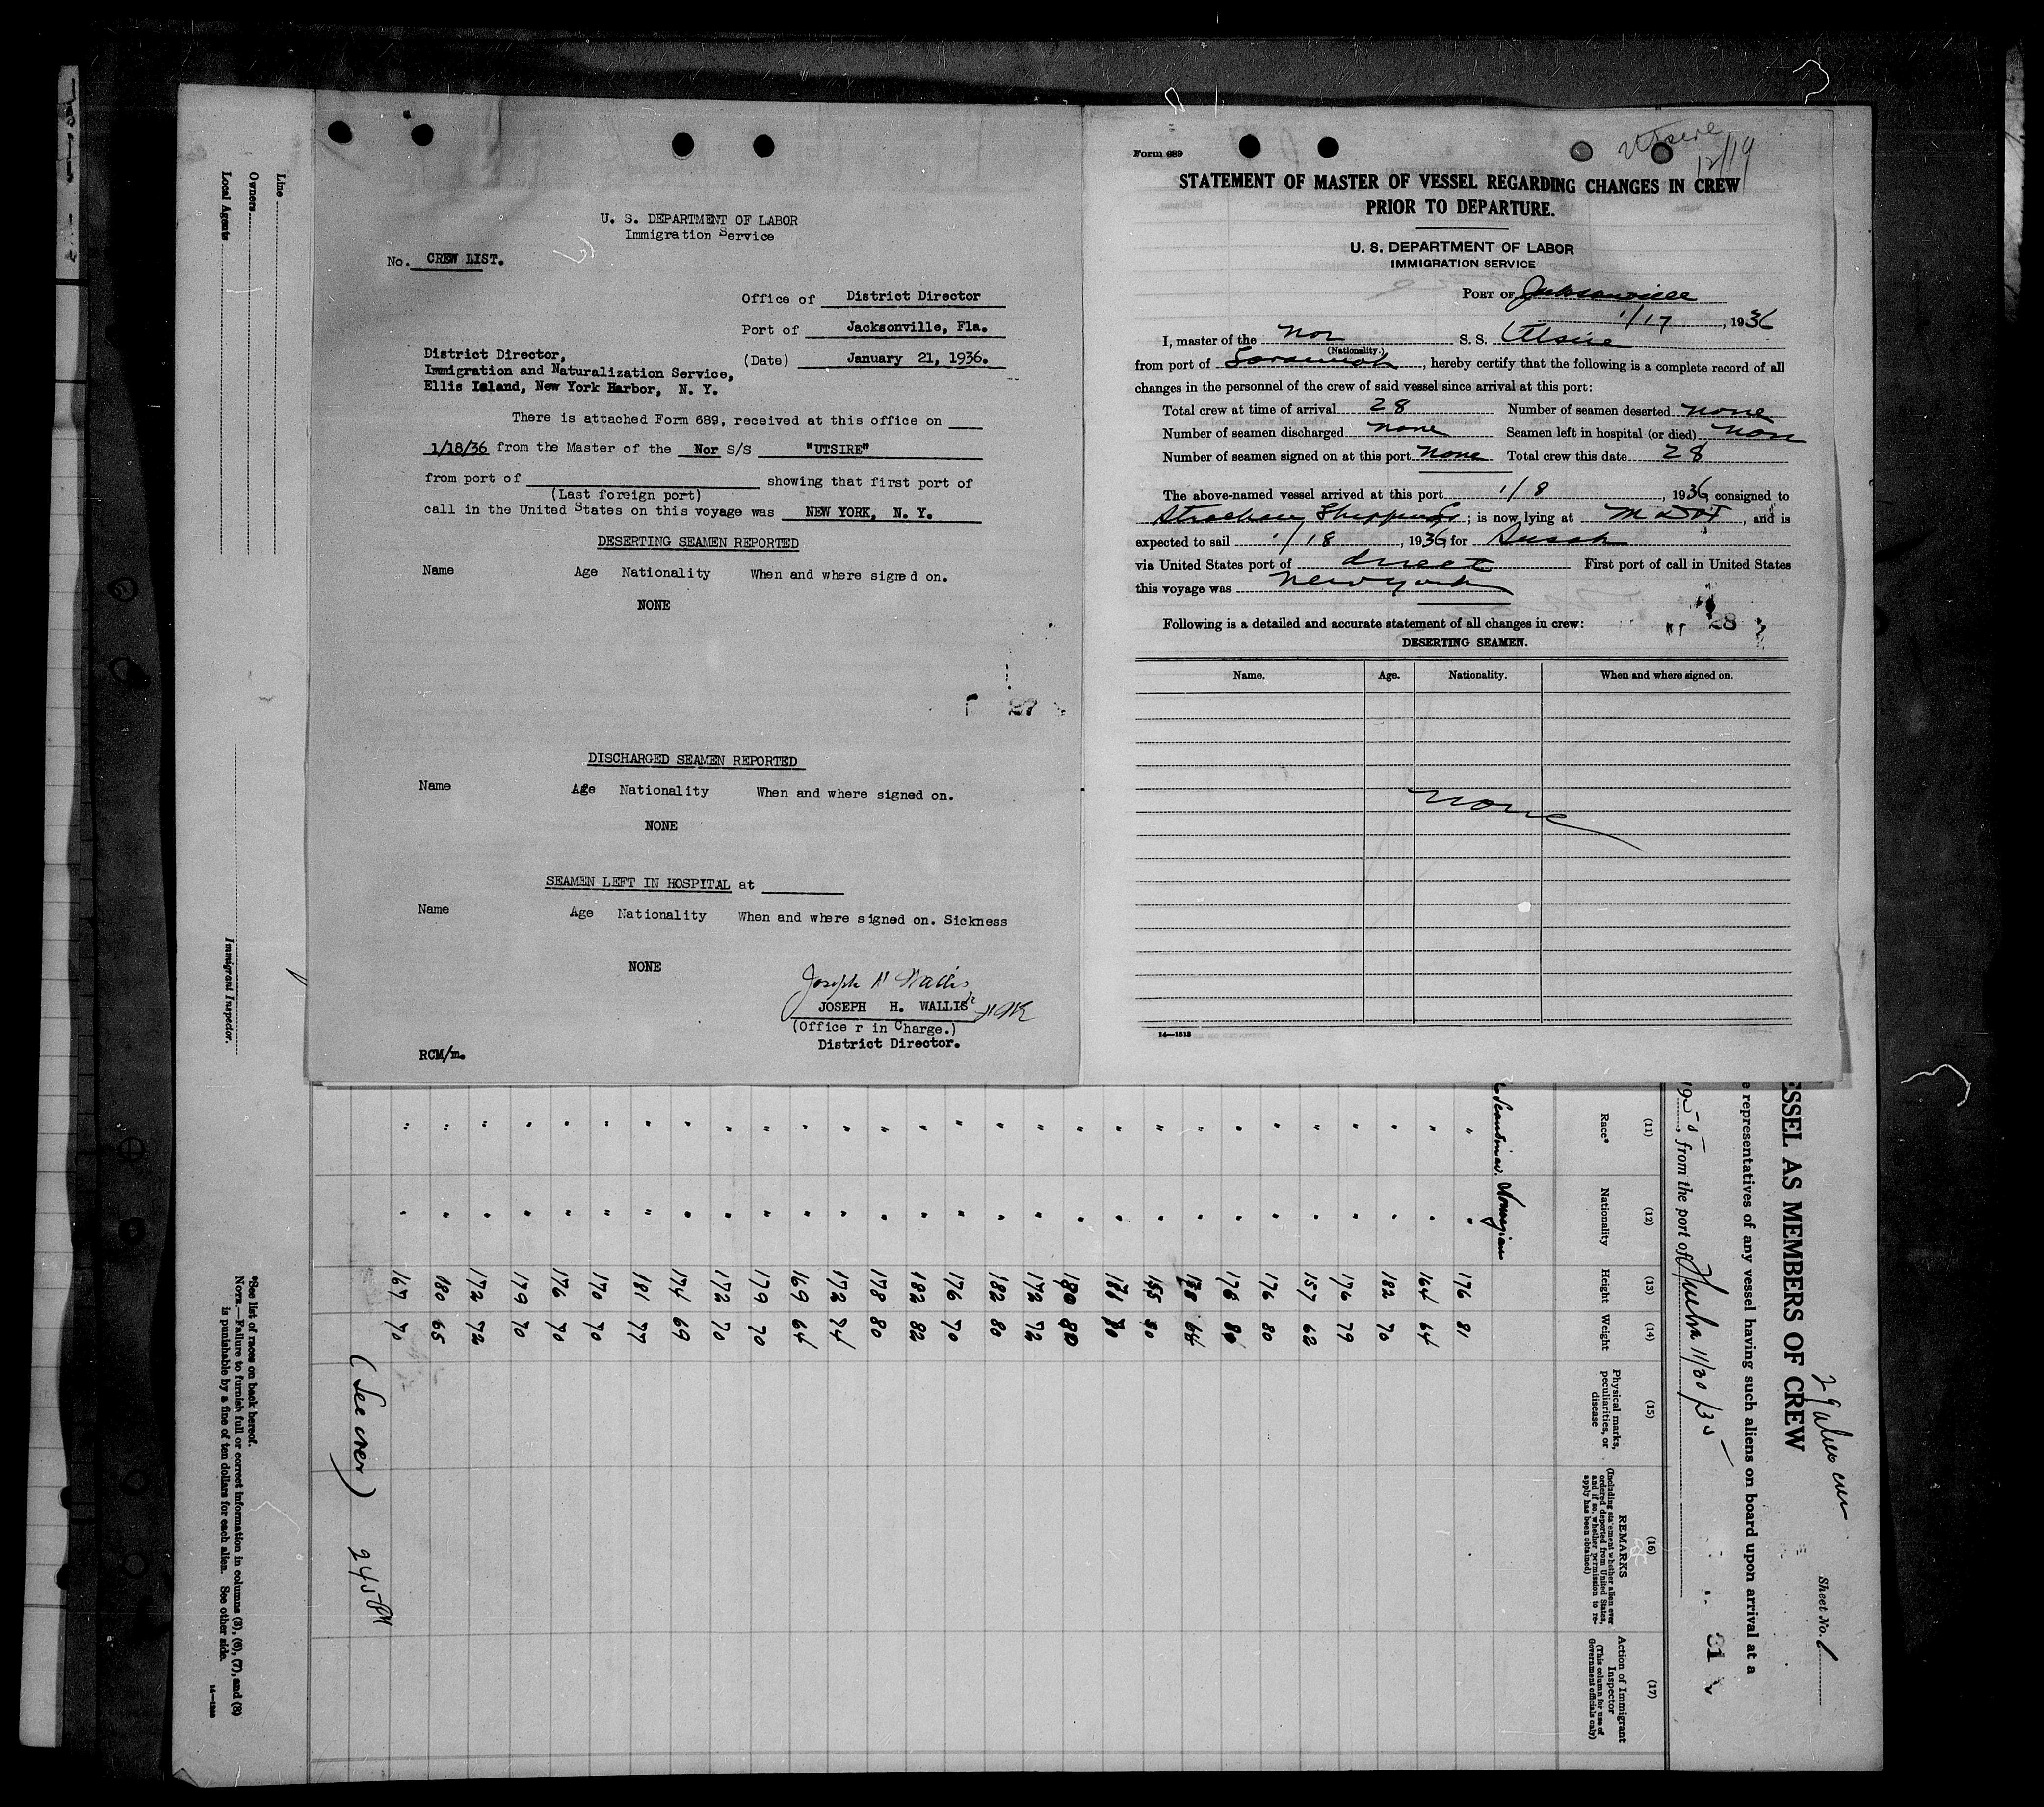 U. S. DEPARTMENT OF LABOR
Immigration Service
No. CREW LIST.
Office of District Director
Port of Jacksonville, Fla.
(Date) January 21, 1936.
District Director,
Immigration and Naturalization Service,
Ellis Island, New York Harbor, N. Y.
There is attached Form 689, received at this office on
1/18/36 from the Master of the Nor S/S "UTSIRE"
from port of showing that first port of
(Last foreign port)
call in the United States on this voyage was NEW YORK, N. Y.
DESERTING SEAMEN REPORTED
Name Age Nationality When and where signed on.
NONE
27
DISCHARGED SEAMEN REPORTED
Name Age Nationality When and where signed on.
NONE
SEAMEN LEFT IN HOSPITAL at
Name Age Nationality When and where signed on. Sickness
NONE
Joseph H Wallis
JOSEPH H. WALLIS
(Office r in Charge.)
District Director.
RCM/m.
Utsire
12/19
Form 689
STATEMENT OF MASTER OF VESSEL REGARDING CHANGES IN CREW
PRIOR TO DEPARTURE.
U. S. DEPARTMENT OF LABOR
IMMIGRATION SERVICE
PORT OF Jacksonville
1/17, 1936
I, master of the Nor S. S. Utsire
(Nationality.)
from port of Savannah, hereby certify that the following is a complete record of all
changes in the personnel of the crew of said vessel since arrival at this port:
Total crew at time of arrival 28 Number of seamen deserted none
Number of seamen discharged none Seamen left in hospital (or died) non
Number of seamen signed on at this port none Total crew this date 28
The above-named vessel arrived at this port 1/8, 1936 consigned to
Strachan Shipping Co; is now lying at M & D T, and is
expected to sail 1/18, 1936 for
via United States port of direct First port of call in United States
this voyage was New York
28
Following is a detailed and accurate statement of all changes in crew:
DESERTING SEAMEN.
Name. Age. Nationality. When and where signed on.
none
14—1613
Line
Owners
Local Agents
Immigrant Inspector.
*See list of races on back hereof.
NOTE.—Failure to furnish full or correct information in columns (3), (6), (7), and (8)
is punishable by a fine of ten dollars for each alien. See other side.
Sheet No. 1
ESSEL AS MEMBERS OF CREW
e representatives of any vessel having such aliens on board upon arrival at a
from the port of Huelva 11/30/35
31
(11) (12) (13) (14) (15) (16) (17)
Race* Nationality Height Weight Physical marks, peculiarities, or disease
REMARKS
(Including statement whether alien ever ordered deported from United States, and if so, whether permission to reapply has been obtained)
Action of Immigrant Inspector
(This column for use of Government officials only)
Scandinav. Norwegian
" " 176 81
" " 164 64
" " 182 70
" " 176 79
" " 157 62
" " 176 80
" " 176 80
" " 64
" "
" " 80
" " 180 80
" " 172 72
" " 182 80
" " 176 70
" " 182 82
" " 178 80
" " 172 74
" " 169 64
" " 179 70
" " 172 70
" " 174 69
" " 181 77
" " 170 70
" " 176 70
" " 179 70
" " 172 72
" " 180 65
" " 167 70
(See over) 245 PM